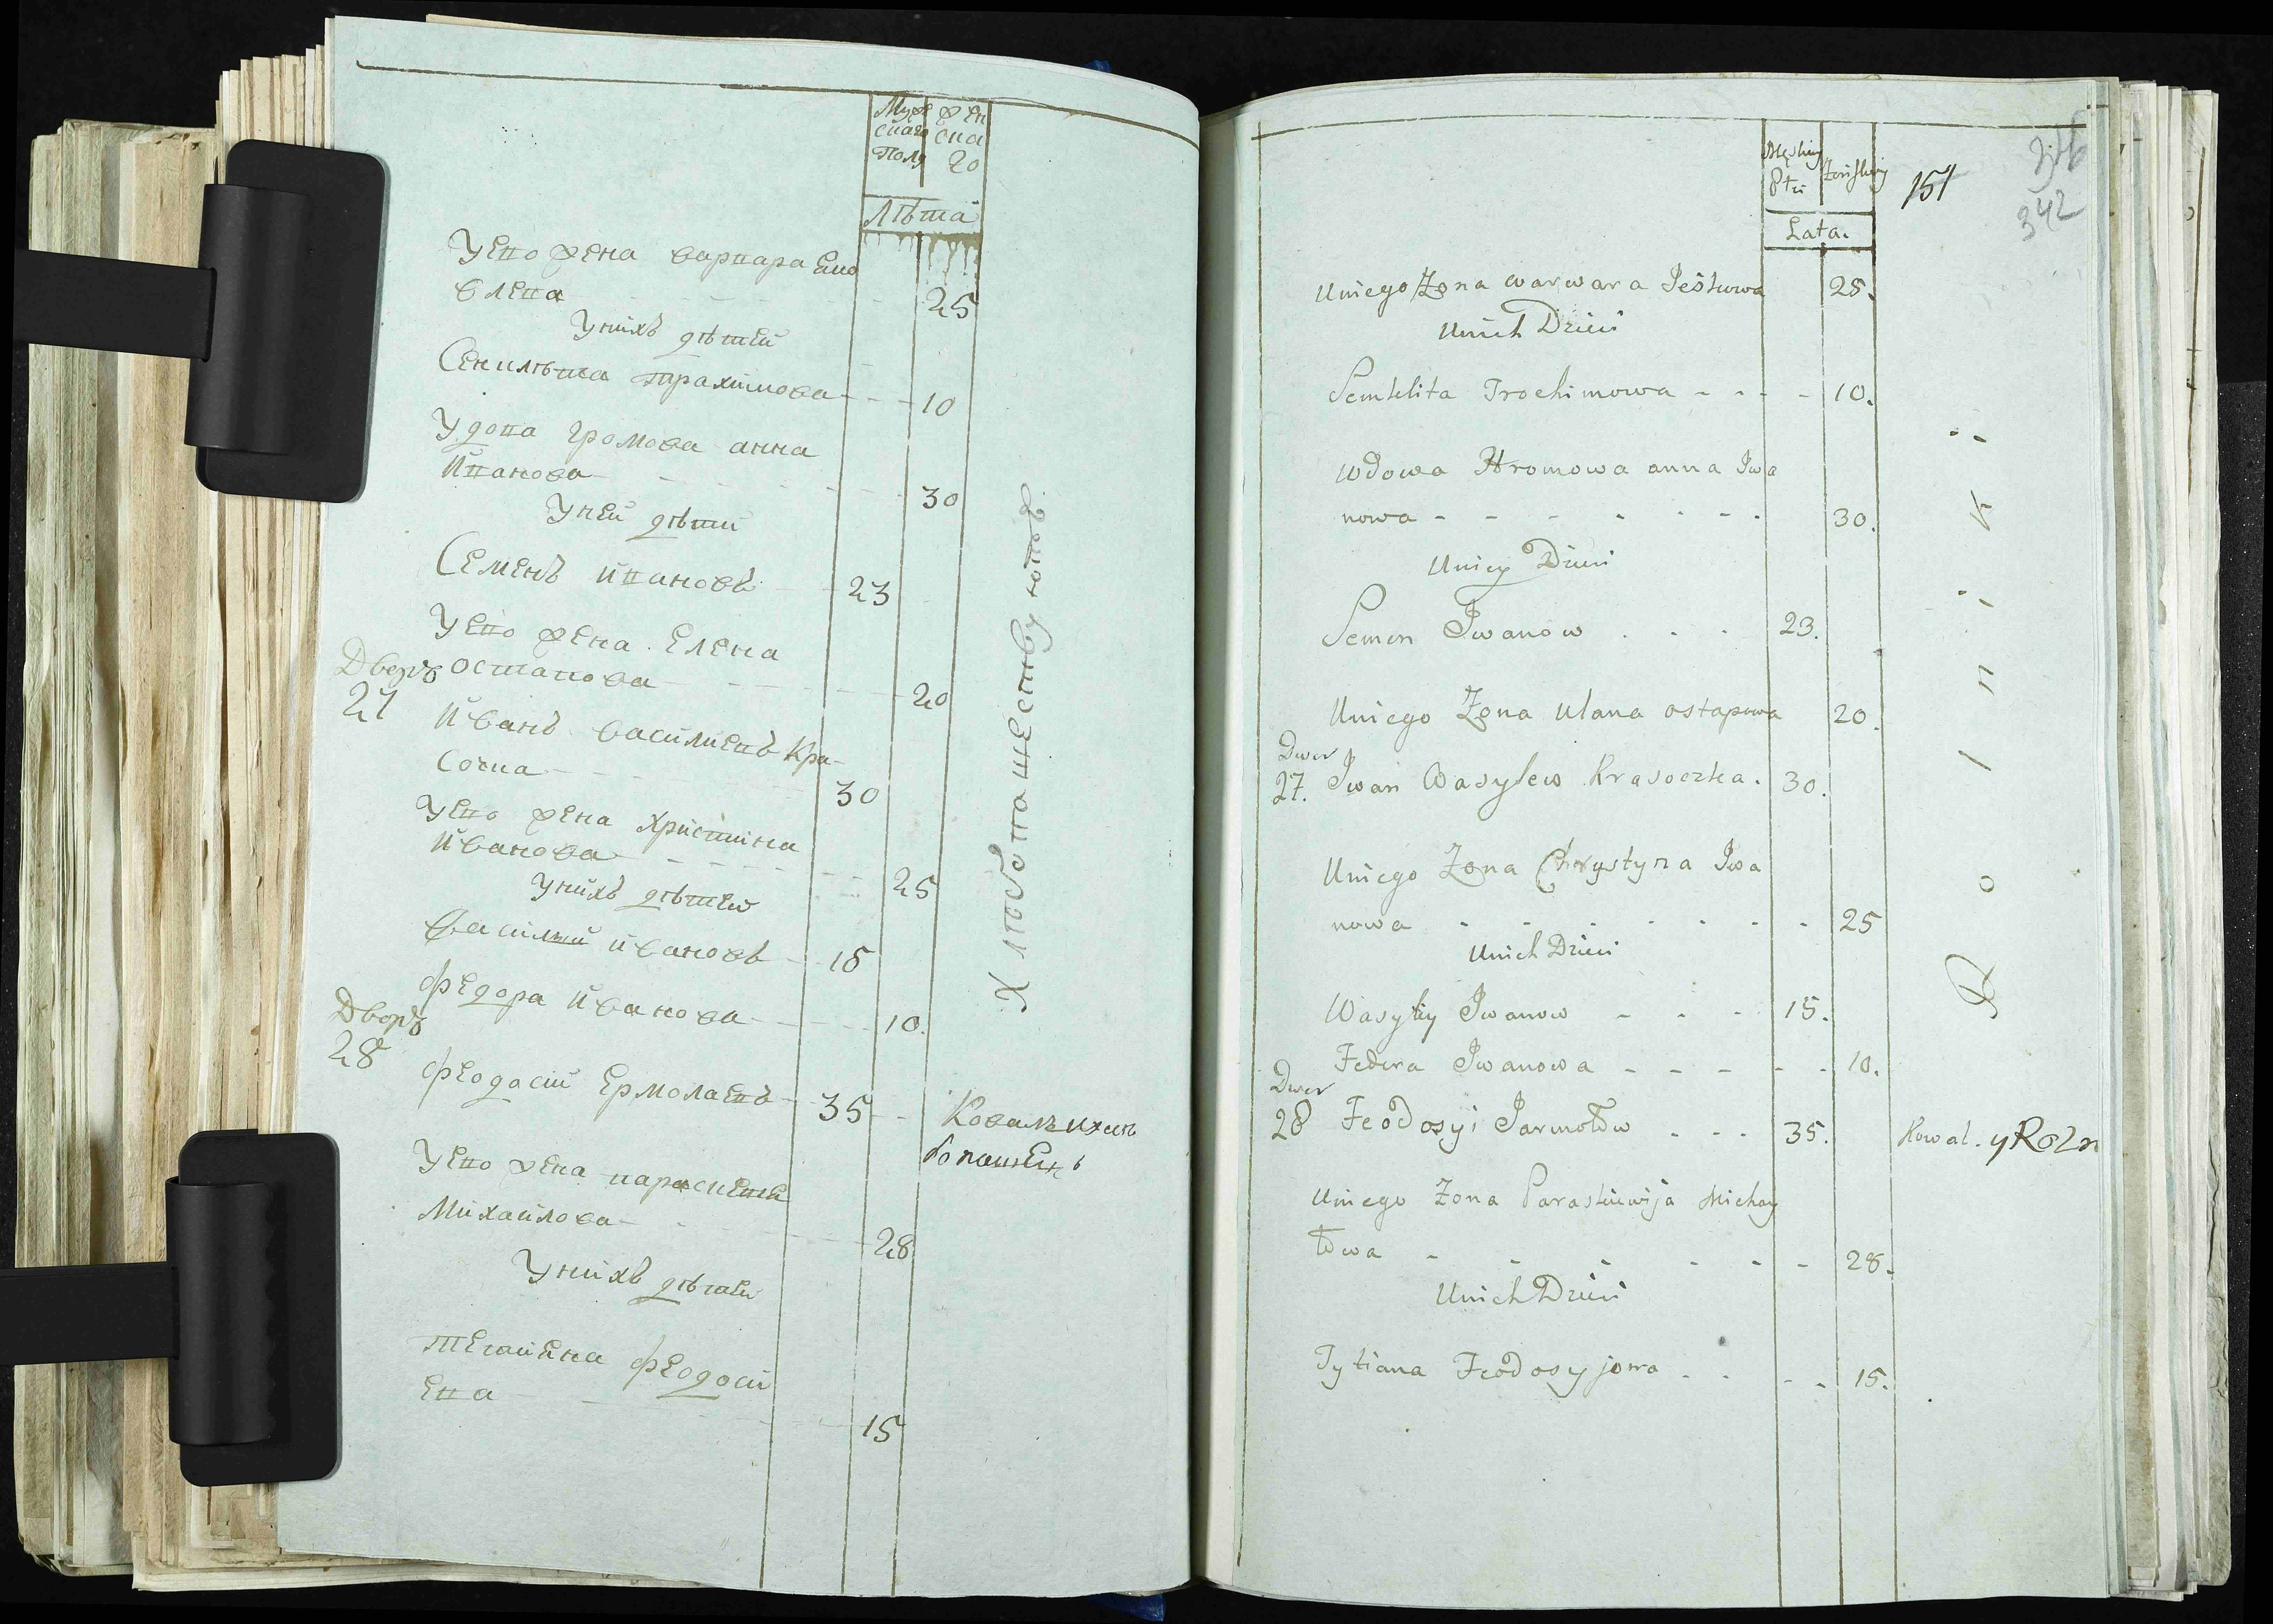 Муж
ска го
Полу
жен
ска
го
Лѣта
Уево жена варвара Ено
влева 25
Унихъ дѣтей
Сенклѣта трахимова 10
Удова громова анна
Иванова 30
Уней дѣти
Семенъ ивановъ 23
Уево жена Елена
остапова 20
Дворъ
27
Иванъ василиевъ Кра-
сочка 30
Уево жена христина
Иванова 25
Унихъ дѣтей
василий ивановъ 15
федора иванова 10.
Дворъ
28
феодосий Ермолаевъ 35
Уево жена параскевия
Михайлова 28
Унихъ дѣтей
татиана феодоси
ева 15
Хлебопашествуютъ.
151
342
Męskiey
Płci
Żeńskiey
Lata.
Uniego Żona warwara 25.
Unich Dzieci
Semklita Trochimowa - - - - 10.
wdowa Hromowa anna Iwa
nowa - - - - - - - 30.
Uniey Dzieci
Semen Iwanow . . . 23.
Uniego Żona Ulana ostapowa 20.
Dwor
27. Iwan Wasylew Krasoczka. 30.
Uniego Żona Chrystyna Iwa
nowa - - - - - - - 25
Unich Dzieci
Wasyliy Iwanow - - - 15.
Fedora Iwanowa - - - - - 10.
Dwor
28 Feodosyi Jarmołow - - - 35. Kowal.
Uniego Żona Paraskiewija Michay
łowa - - - - - - 28.
Unich Dzieci
Tytiana Feodosyjowa . . - - 15.
Rolniki